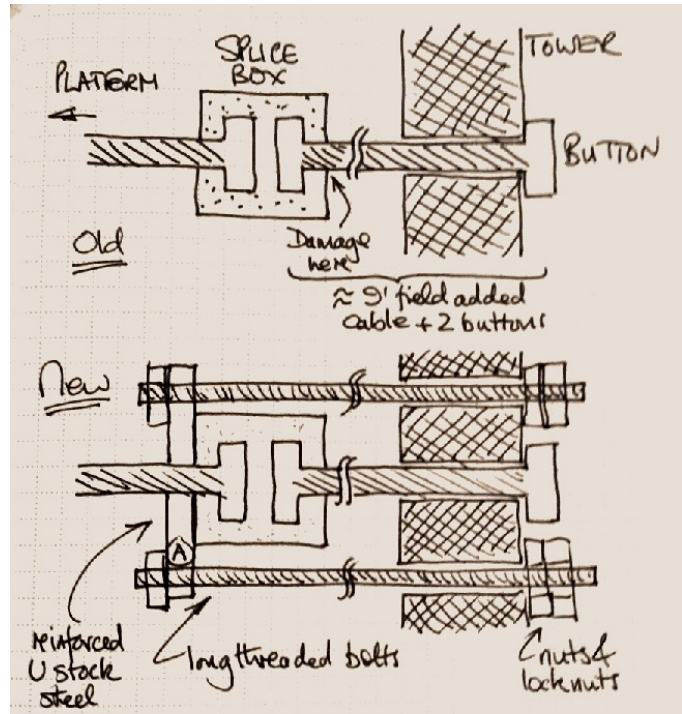 SPLICE
BOX
TOWER
PLATFERM
BUTTON
Old
Damage
here
≈ 9' field added
cable + 2 buttons
New
A
reinforced
U stock
steel
long threaded bolts
nuts &
locknuts